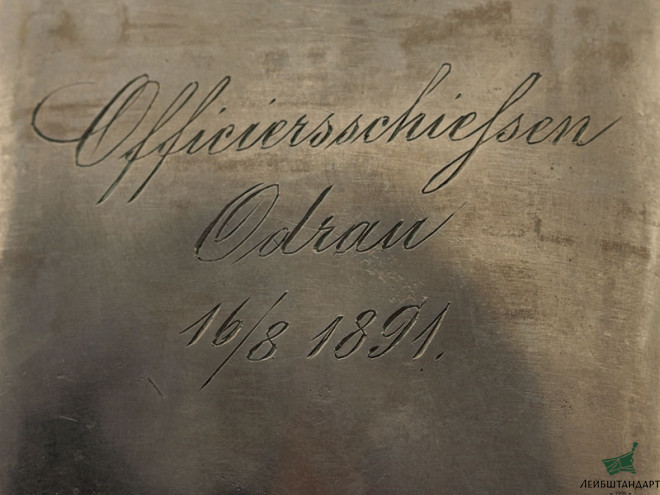 Officiersschießen
Odrau
16/8 1891.
ЛЕЙБШТАНДАРТ